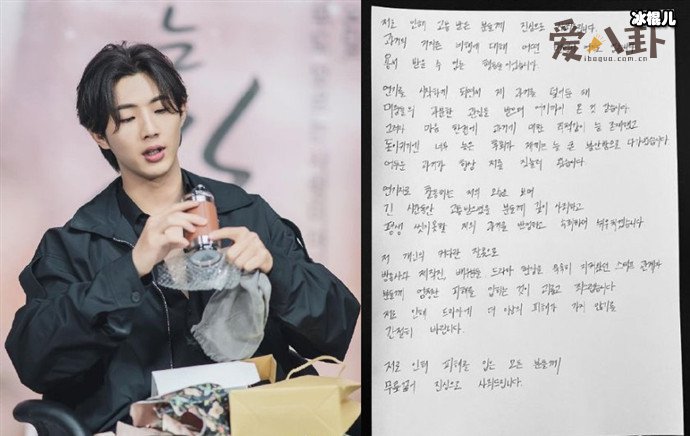 冰棍儿
爱八卦
ibagua.com.cn
늘
저로 인해 고통 받은 분들께 진심으로
과거의 저지른 비행에 대해 어떤
용서 받을 수 없는 행동들이었습니다.
연기를 시작하게 되면서 제 과거를 덮어둔 채
대중들의 과분한 관심을 받으며 여기까지 온 것 같습니다.
그러나 마음 한켠에 과거에 대한 죄책감이 늘 존재했고
돌이키기엔 너무 늦은 후회가 제게는 늘 큰 불안함으로 다가왔습니다
어두운 과거가 항상 저를 짓눌러 왔습니다.
연기자로 활동하는 저의 모습을 보며
긴 시간동안 고통받으셨을 분들께 깊이 사죄하고
평생 씻지못할 저의 과거를 반성하고 뉘우치겠습니다
저 개인의 커다란 잘못으로
방송사와 제작진, 배우들 드라마 현장을 묵묵히 지켜왔던 스태프 관계자
분들께 엄청난 피해를 입히는 것이 괴롭고 죄스럽습니다
저로 인해 드라마에 더 이상의 피해가 가지 않기를
간절히 바랍니다.
저로 인해 피해를 입은 모든 분들께
무릎꿇어 진심으로 사죄드립니다.